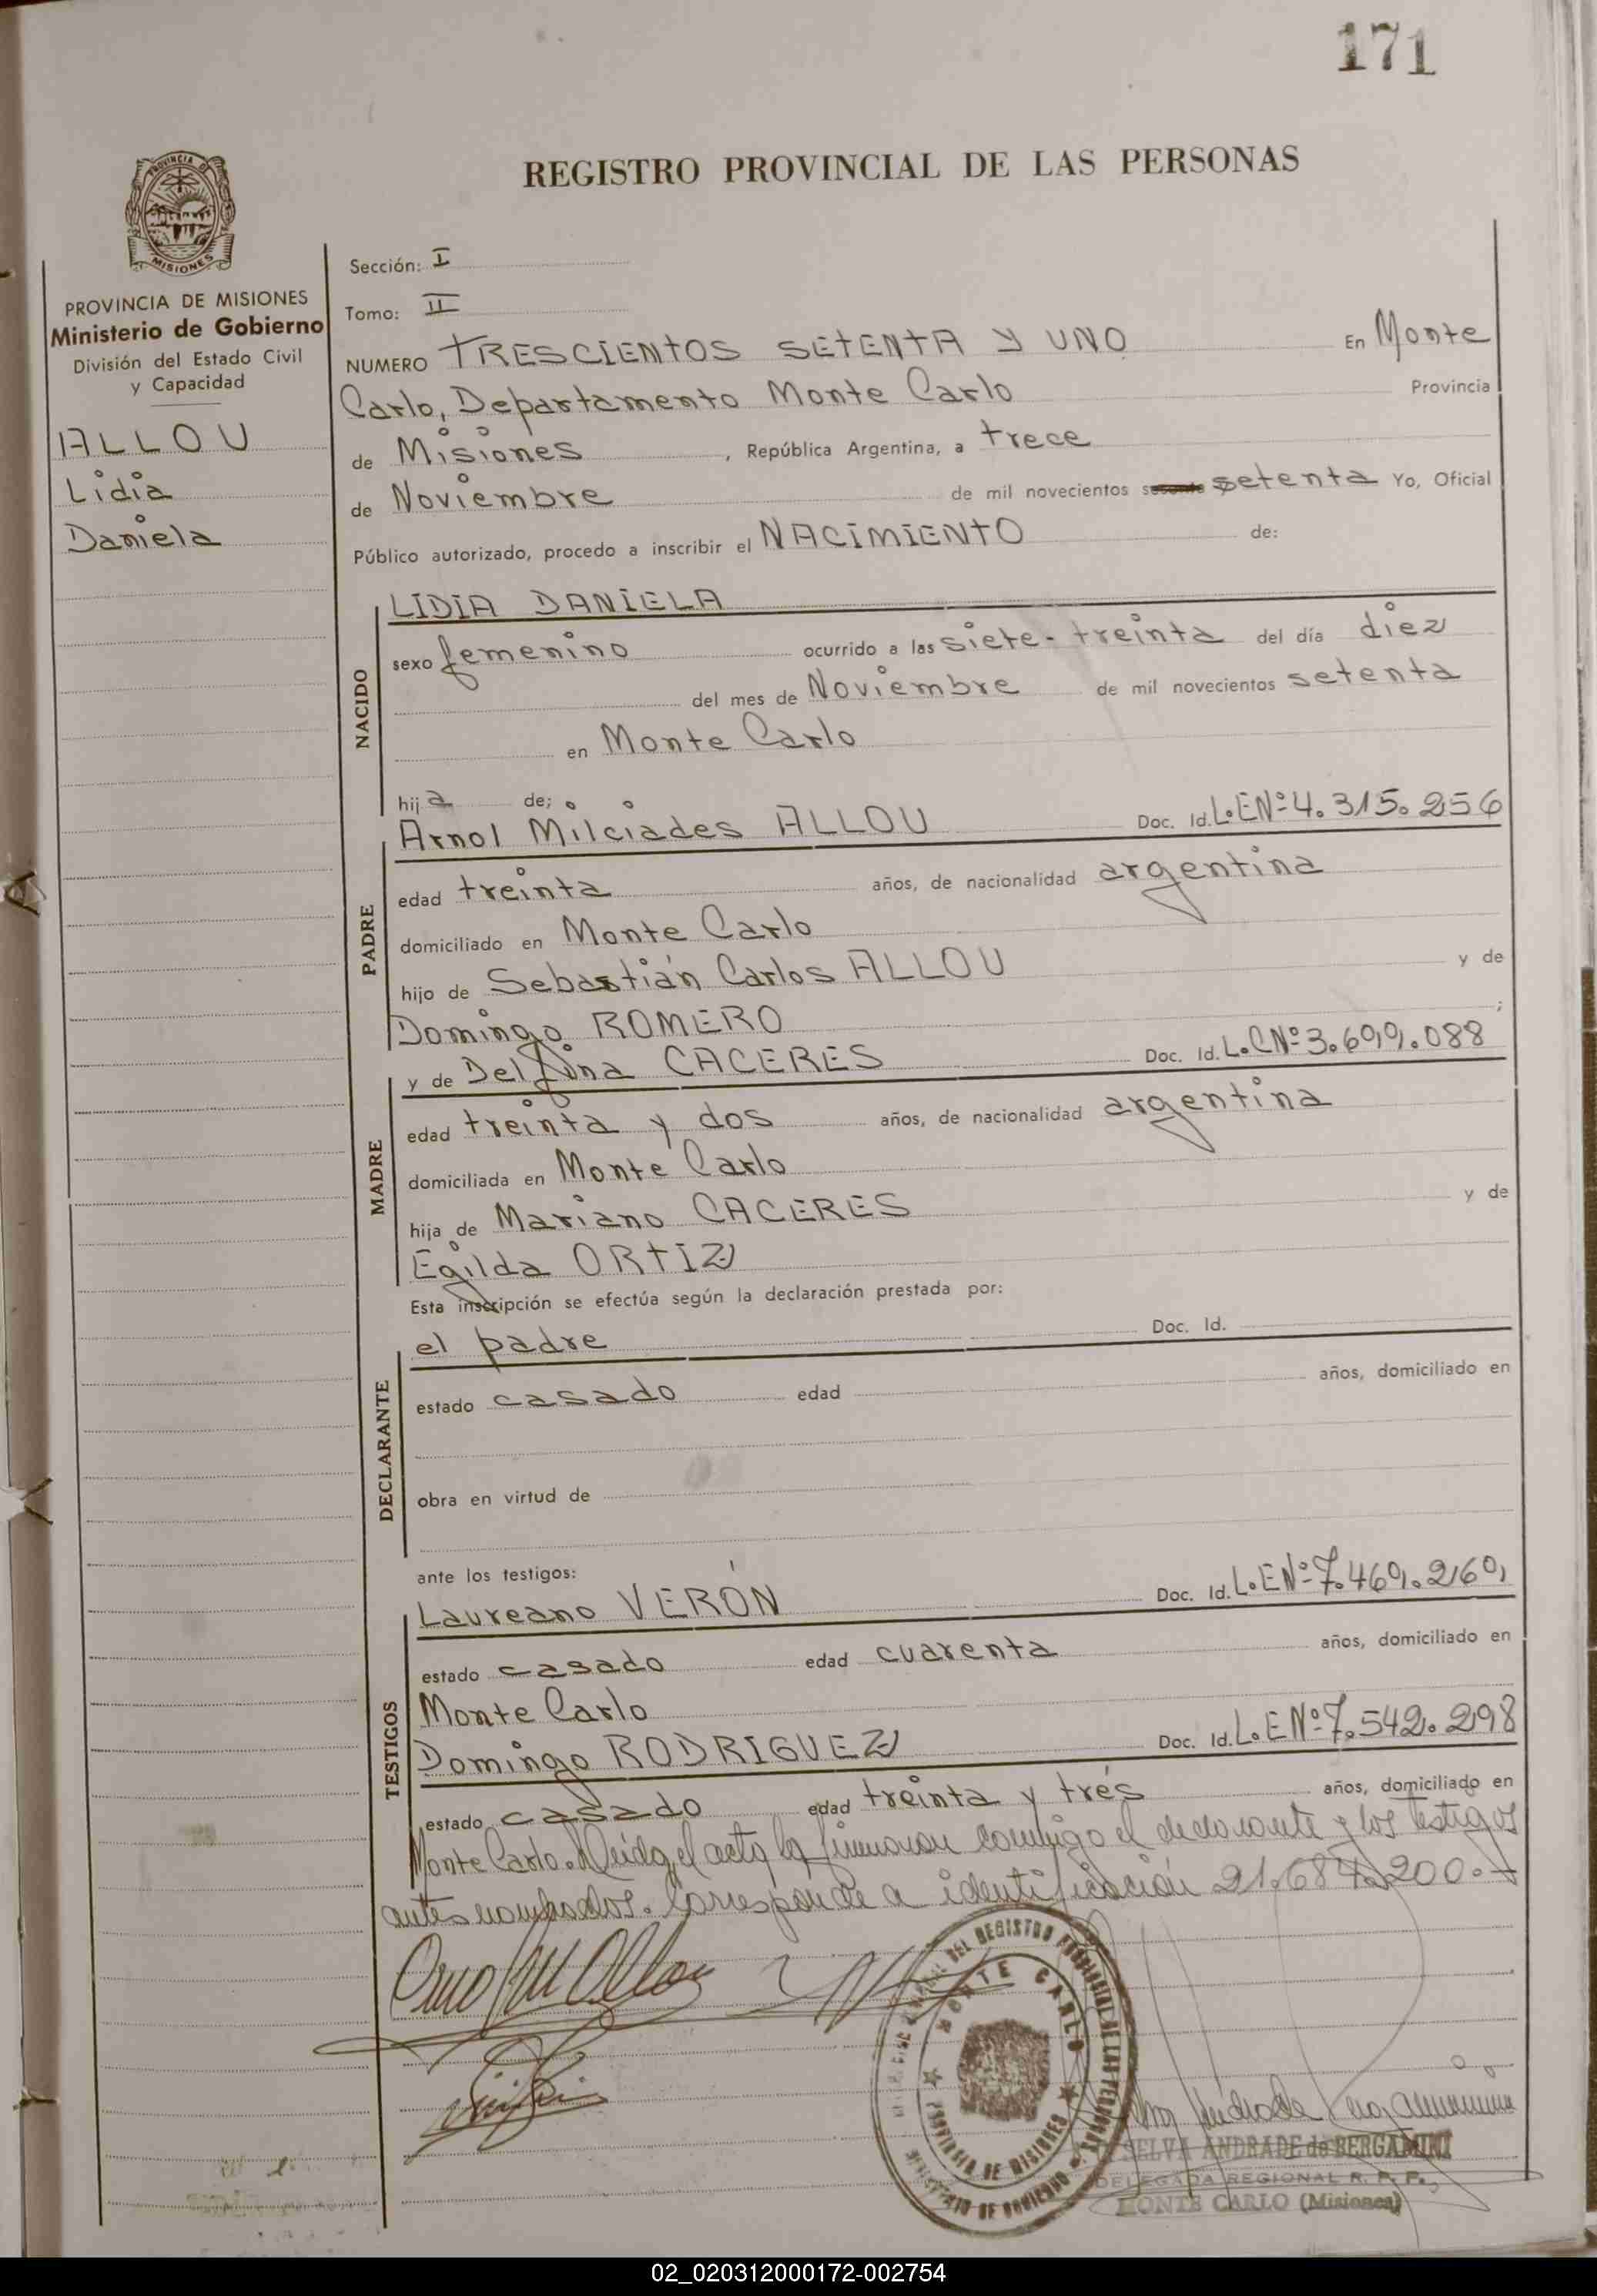 171
REGISTRO PROVINCIAL DE LAS PERSONAS
PROVINCIA DE MISIONES
PROVINCIA DE MISIONES
Ministerio de Gobierno
División del Estado Civil
y Capacidad
ALLOU
Lidia
Daniela
Sección: I
Tomo: II
NUMERO TRESCIENTOS SETENTA Y UNO En Monte
Carlo, Departamento Monte Carlo Provincia
de Misiones, República Argentina, a trece
de Noviembre de mil novecientos setenta Yo, Oficial
Público autorizado, procedo a inscribir el NACIMIENTO de:
NACIDO
LIDIA DANIELA
sexo femenino ocurrido a las siete-treinta del día diez
del mes de Noviembre de mil novecientos setenta
en Monte Carlo
hija de;
PADRE
Arnol Milciades ALLOU Doc. Id. L.E Nº 4.315.256
edad treinta años, de nacionalidad argentina
domiciliado en Monte Carlo
hijo de Sebastián Carlos ALLOU y de
Dominga ROMERO ;
MADRE
y de Delfina CACERES Doc. Id. L.C Nº 3.699.088
edad treinta y dos años, de nacionalidad argentina
domiciliada en Monte Carlo
hija de Mariano CACERES y de
Egilda ORTIZ
Esta inscripción se efectúa según la declaración prestada por:
DECLARANTE
el padre Doc. Id.
estado casado edad años, domiciliado en
obra en virtud de
ante los testigos:
TESTIGOS
Laureano VERÓN Doc. Id. L.E Nº 7.469.269,
estado casado edad cuarenta años, domiciliado en
Monte Carlo
Domingo RODRIGUEZ Doc. Id. L.E Nº 7.542.298
estado casado edad treinta y trés años, domiciliado en
Monte Carlo. Leída el acta la firmaron conmigo el declarante y los testigos
antes nombrados. Corresponde a identificación 21.684.200.-
DEL REGISTRO PROVINCIAL DE LAS PERSONAS
MONTE CARLO
PROVINCIA DE MISIONES
MINISTERIO DE GOBIERNO
SELVA ANDRADE de BERGAMINI
DELEGADA REGIONAL R. P. P.
MONTE CARLO (Misiones)
02_020312000172-002754